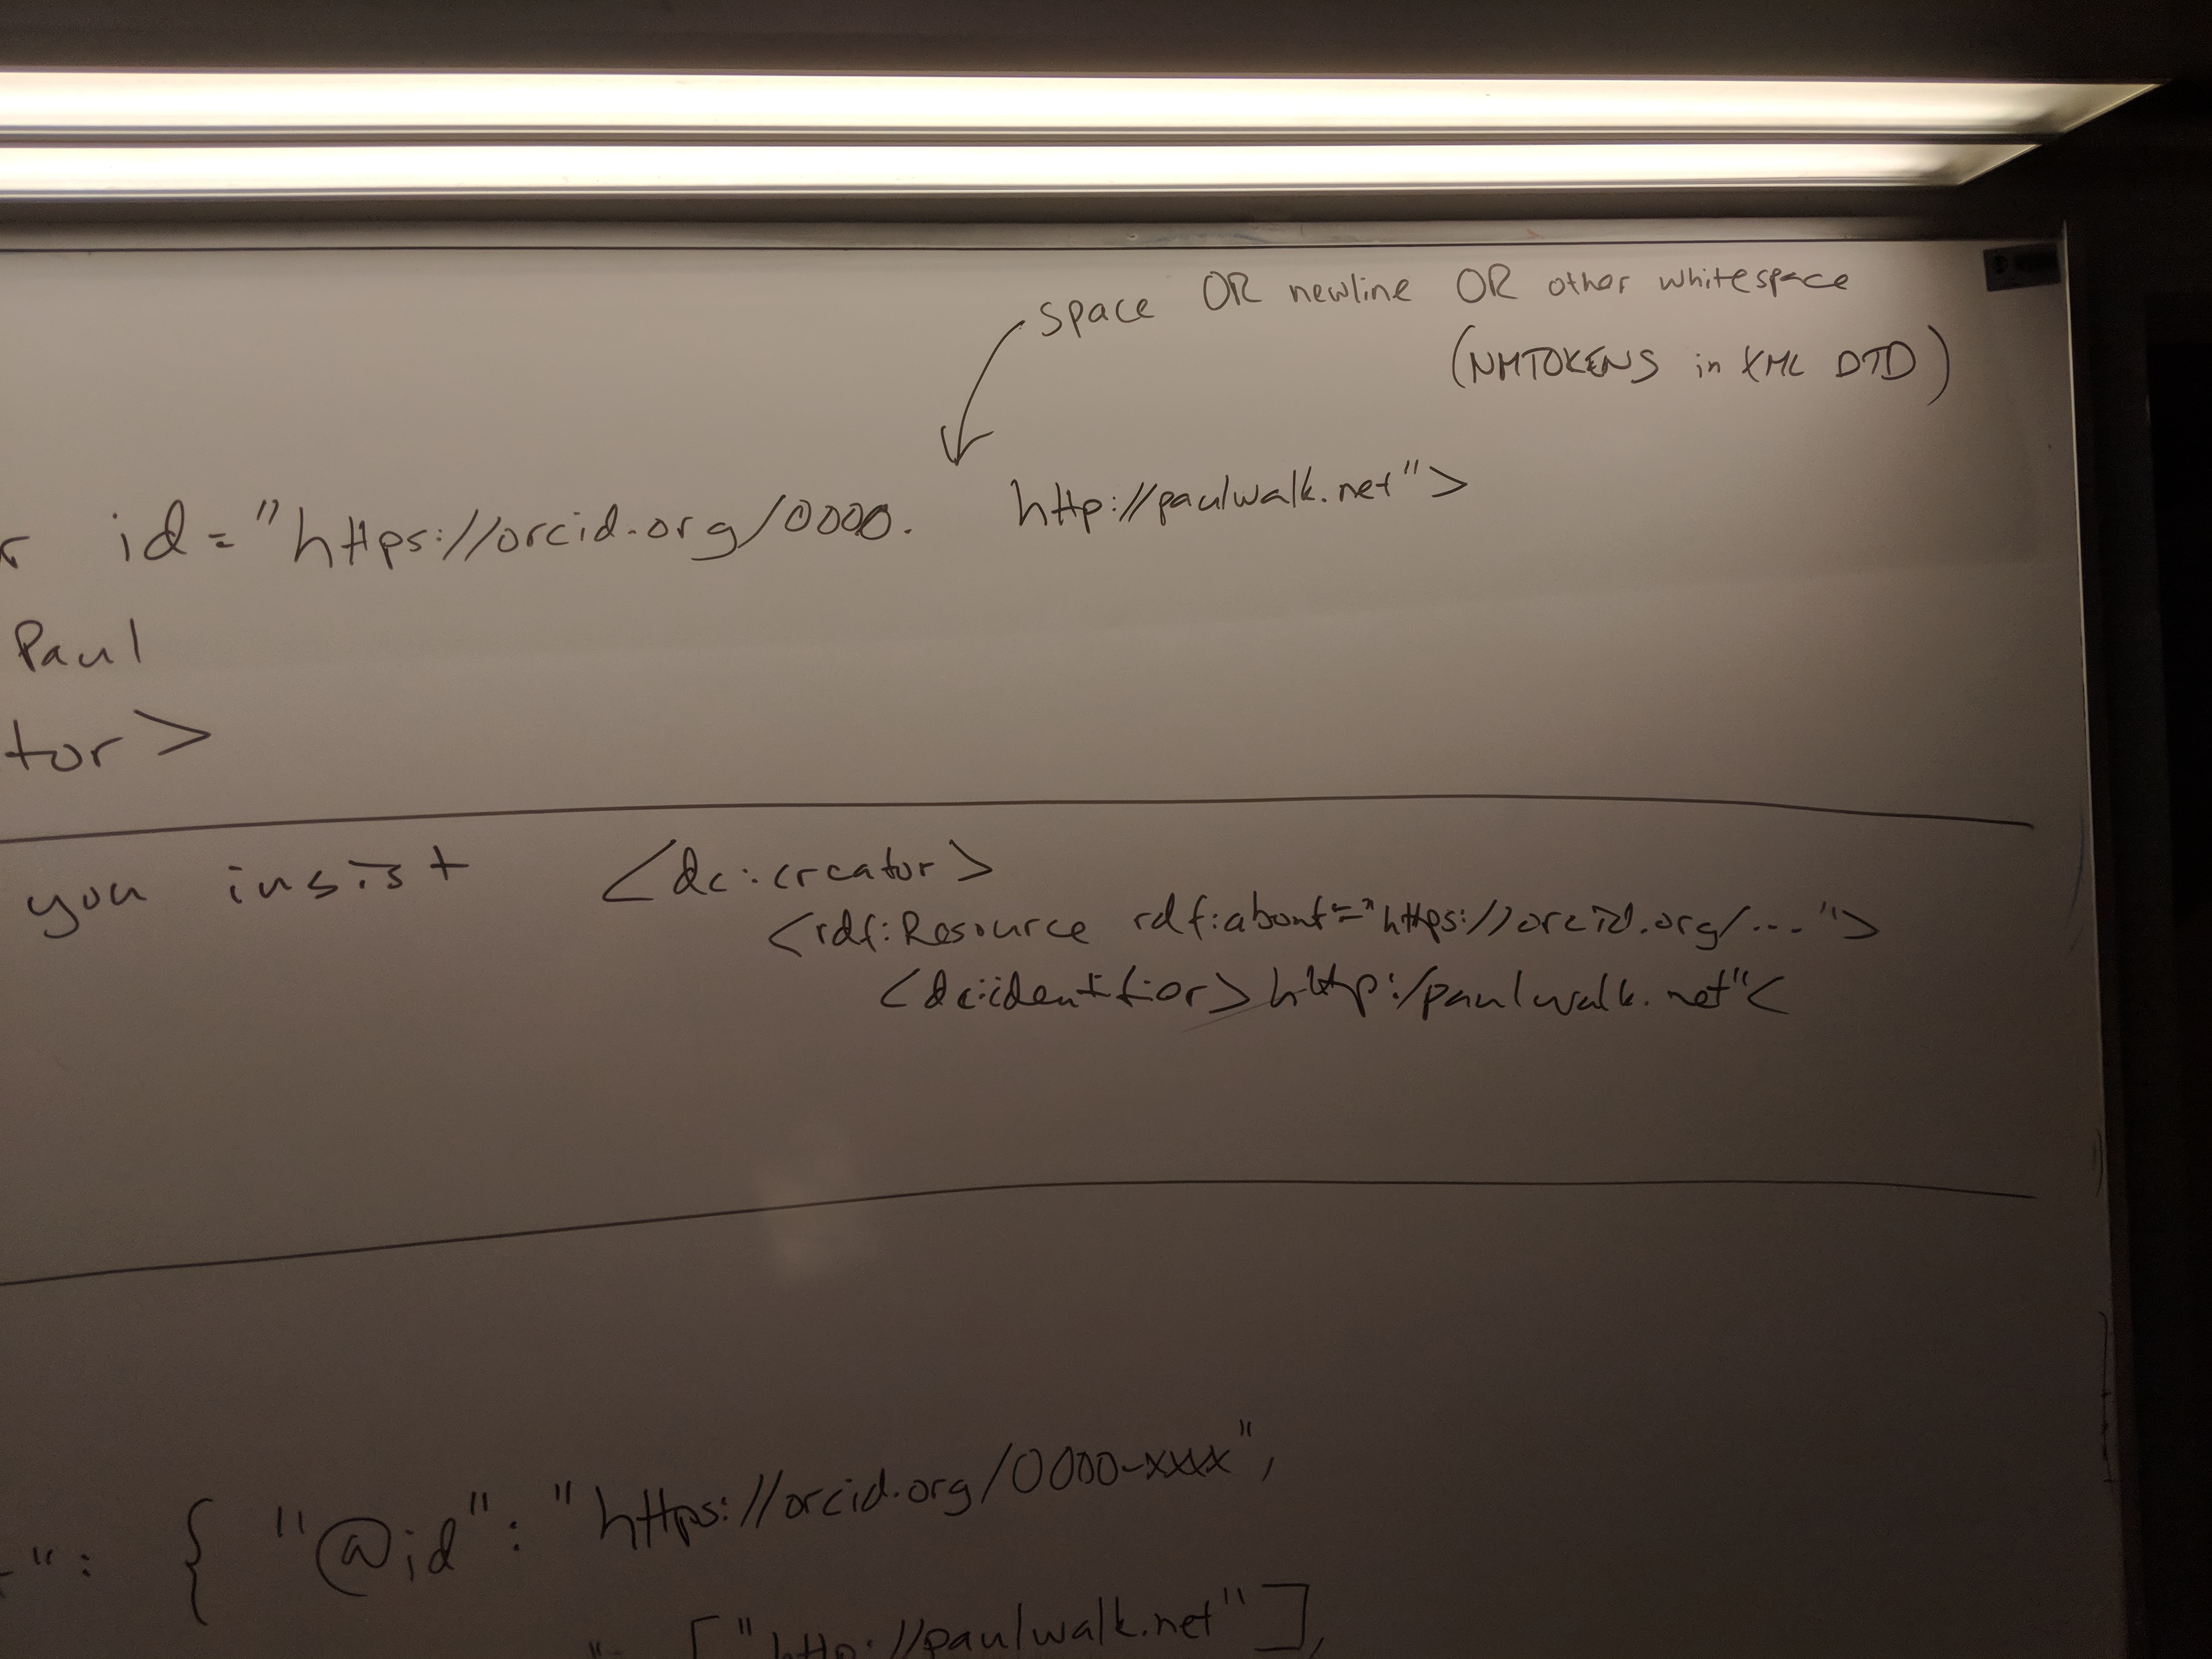 space OR newline OR other whitespace
(NMTOKENS in XML DTD)
r id="https://orcid.org/0000. http://paulwalk.net">
Paul
tor>
you insist <dc:creator>
<rdf:Resource rdf:about="https://orcid.org/... ">
<dc:identifier>http:/paulwalk.net"<
": { "@id": "https://orcid.org/0000-xxxx",
" ["http://paulwalk.net"],